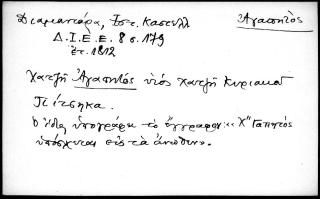 Διαμαντάρα, Ἱστ. Καστελλ Ἀγαπητὸς
Δ.Ι.Ε.Ε. 8 σ. 179
ἔτ. 1812
Χατζῆ Ἀγαπητὸς υἱὸς χατζῆ Κυριακοῦ
Πίτσηκα.
ὁ ἴδιος ὑπογράφει τὸ ἔγγραφον: «Χ" Γαπητός
ὑπόσχομαι εἰς τὰ ἄνωθεν».